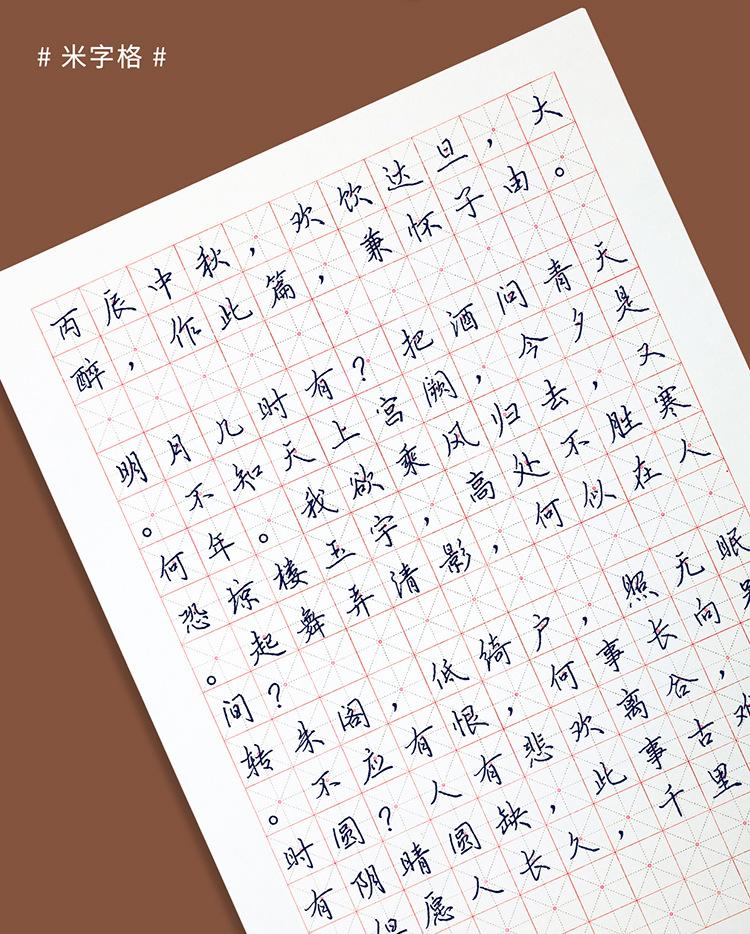 # 米字格 #
丙辰中秋，欢饮达旦，大
醉，作此篇，兼怀子由。
明月几时有？把酒问青天
。不知天上宫阙，今夕是
何年。我欲乘风归去，又
恐琼楼玉宇，高处不胜寒
。起舞弄清影，何似在人
间？
转朱阁，低绮户，照无眠
。不应有恨，何事长向别
时圆？人有悲欢离合，
有阴晴圆缺，此事古难
但愿人长久，千里